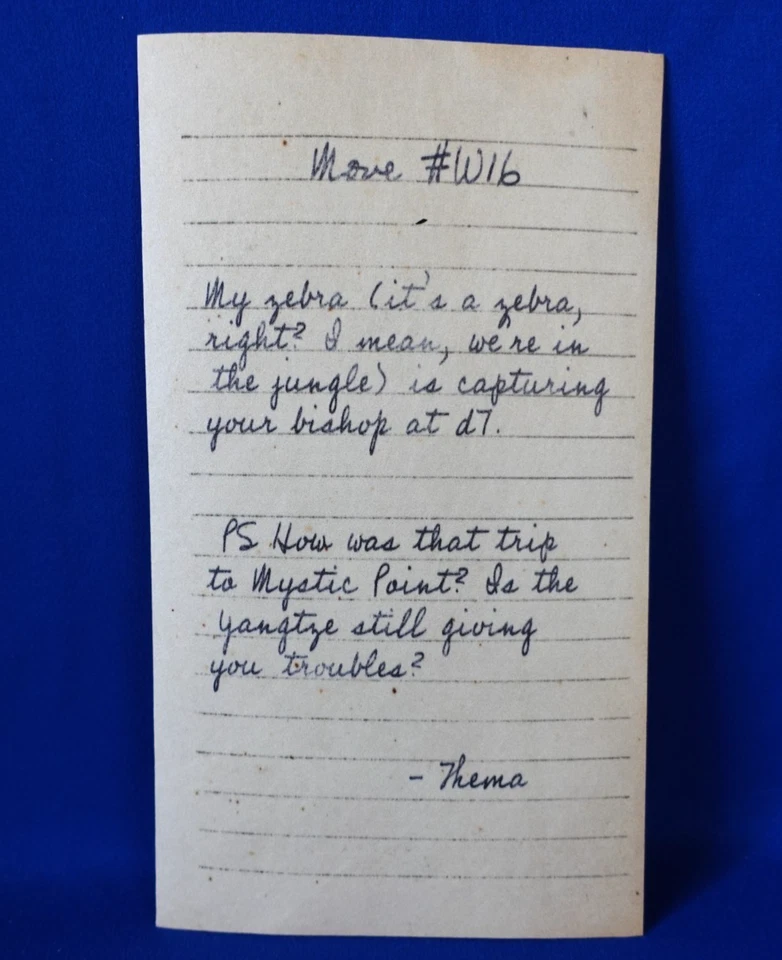 Move #W16
My zebra (it's a zebra,
right? I mean, we're in
the jungle) is capturing
your bishop at d7.
PS How was that trip
to Mystic Point? Is the
Yangtze still giving
you troubles?
- Thema